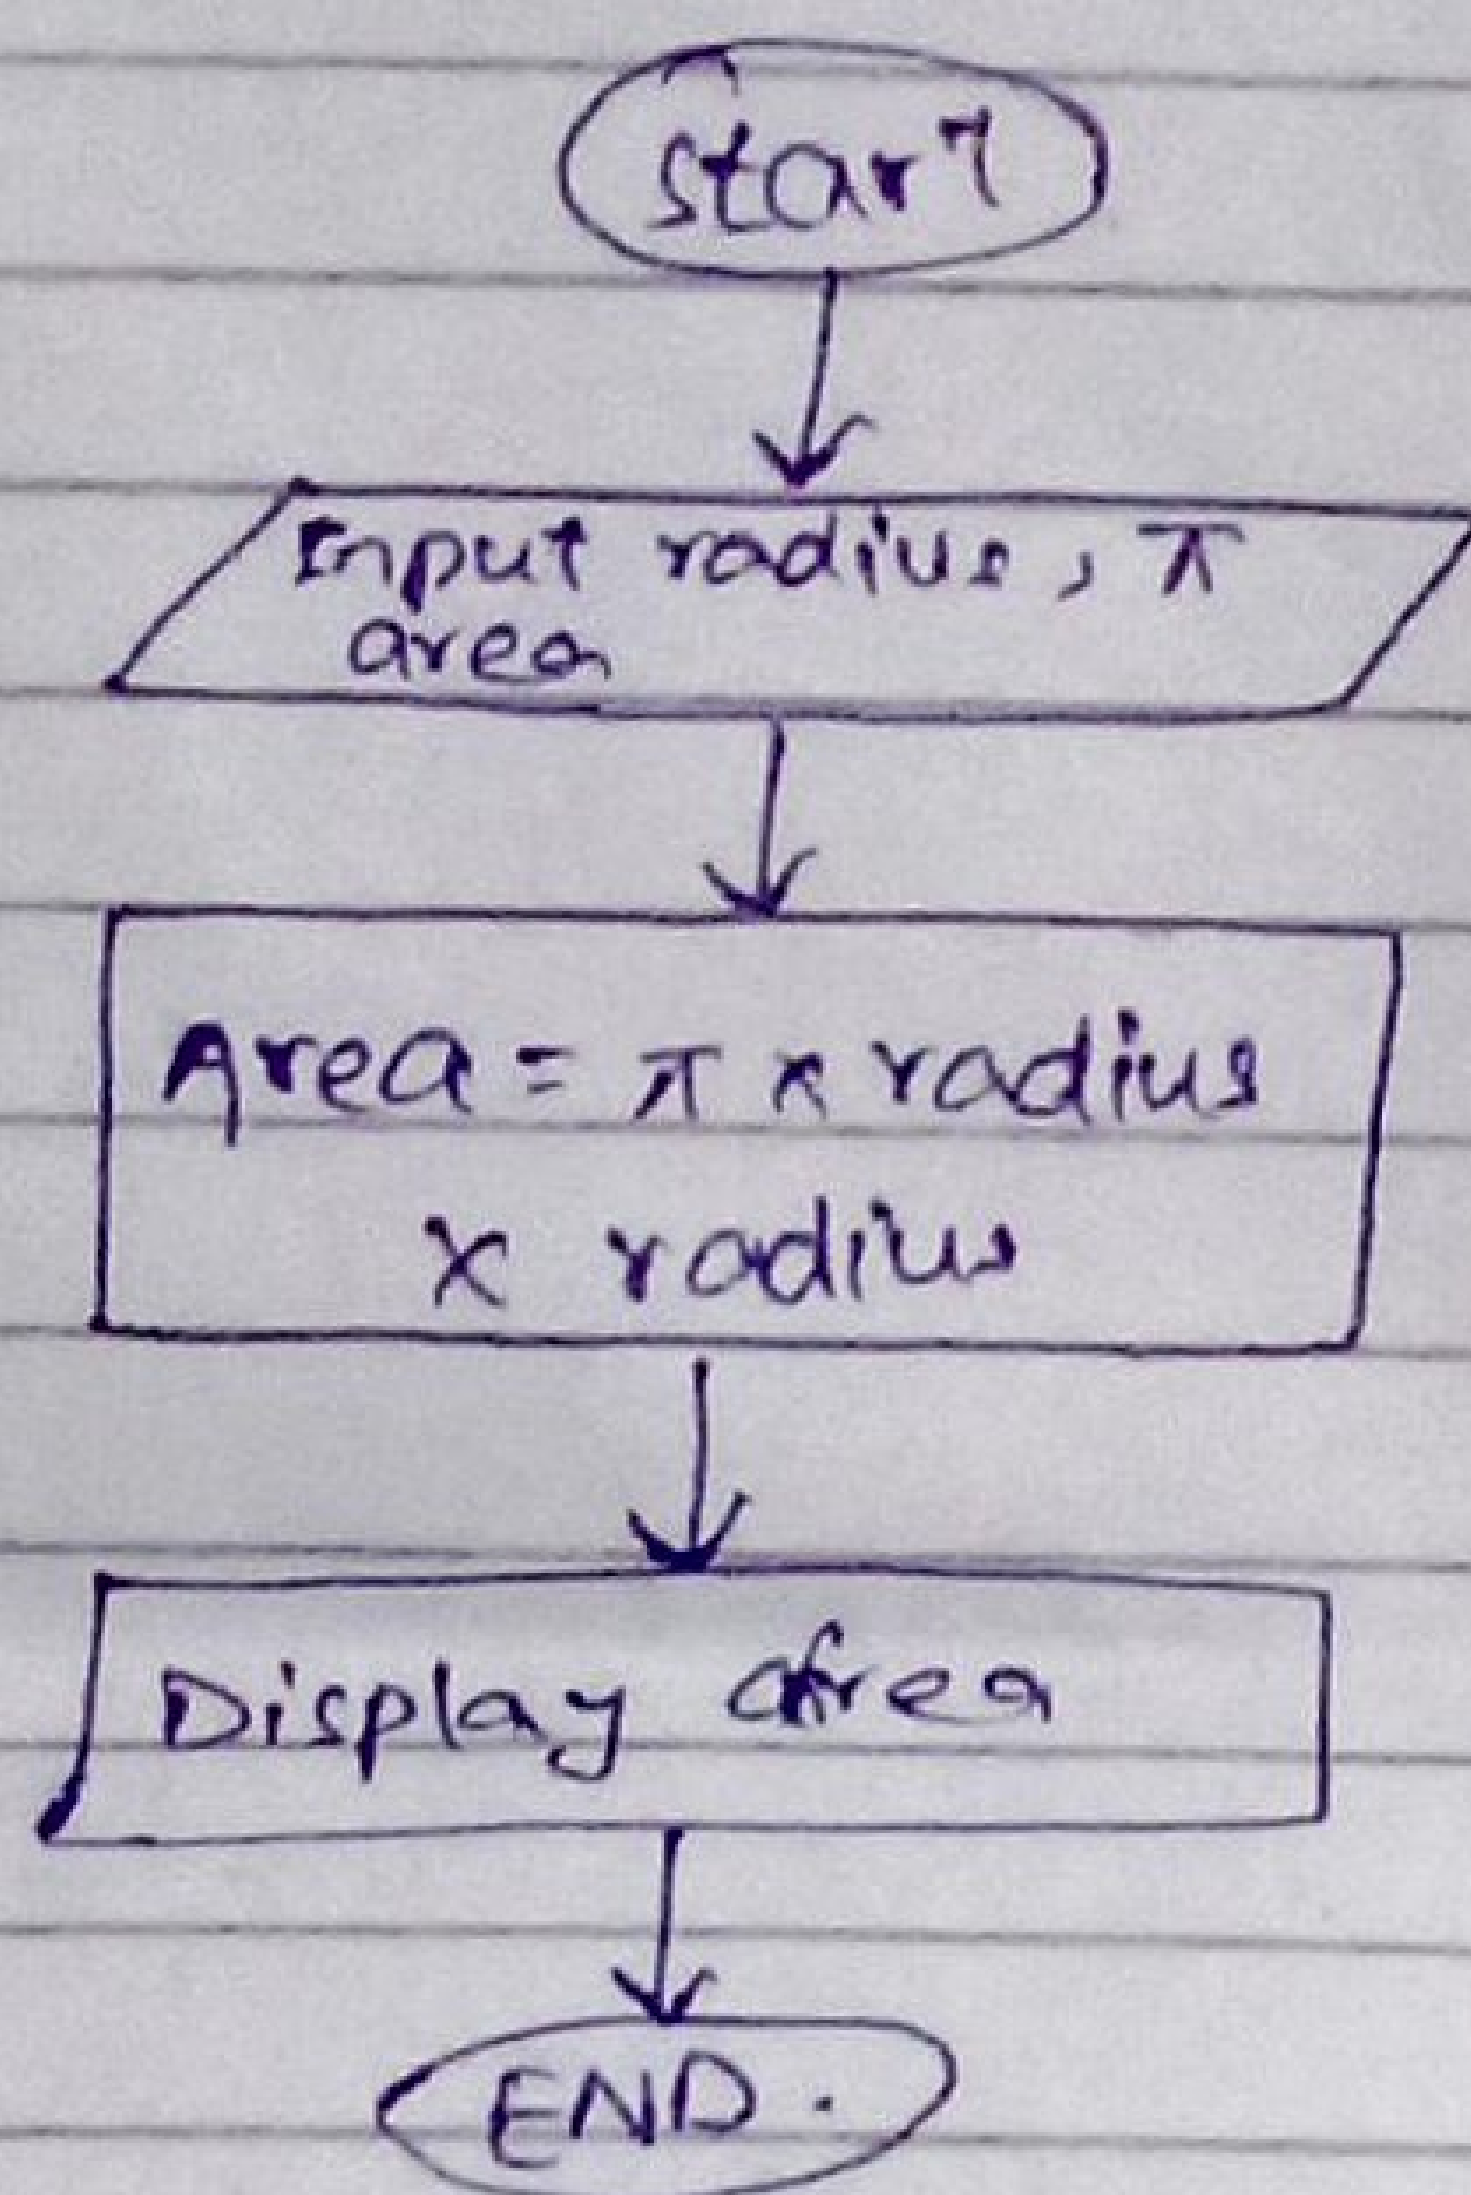 start
Input radius, π
area
Area = π × radius
× radius
Display area
END.